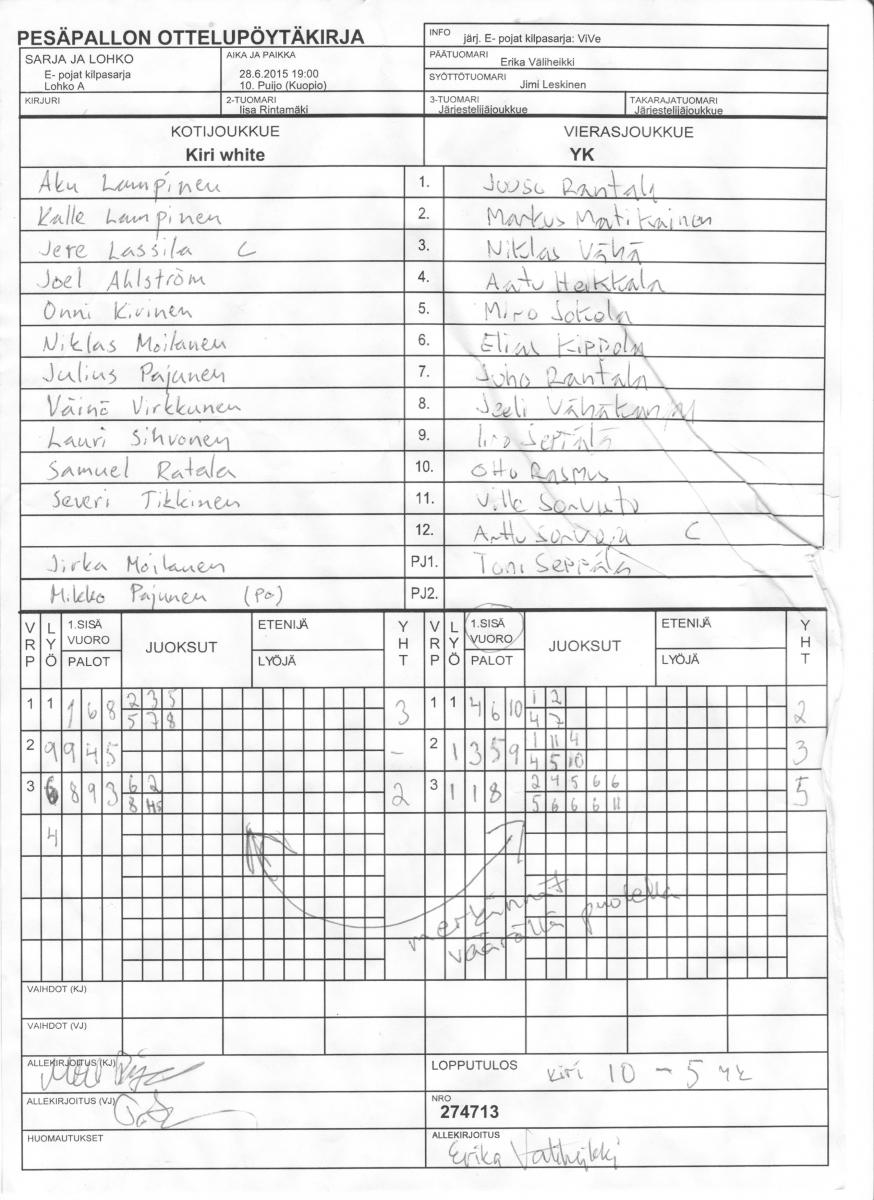 PESÄPALLON OTTELUPÖYTÄKIRJA
INFO järj. E- pojat kilpasarja: ViVe
SARJA JA LOHKO
E- pojat kilpasarja
Lohko A
AIKA JA PAIKKA
28.6.2015 19:00
10. Puijo (Kuopio)
PÄÄTUOMARI
Erika Väliheikki
SYÖTTÖTUOMARI
Jimi Leskinen
KIRJURI
2-TUOMARI
Iisa Rintamäki
3-TUOMARI
Järjestelijäjoukkue
TAKARAJATUOMARI
Järjestelijäjoukkue
KOTIJOUKKUE
Kiri white
VIERASJOUKKUE
YK
Aku Lampinen 1. Juuso Rantala
Kalle Lampinen 2. Markus Matikainen
Jere Lassila C 3. Niklas Vähä
Joel Ahlström 4. Aatu Heikkala
Onni Kivinen 5. Miro Sokola
Niklas Moilanen 6. Elias Kippola
Julius Pajunen 7. Juho Rantala
Väinö Virkkunen 8. Jeeli
Lauri Sihvonen 9. Iiro Seppälä
Samuel Ratala 10. Otto Rasmus
Severi Tikkinen 11. Ville
12. Arttu C
Jirka Moilanen PJ1. Toni Seppälä
Mikko Pajunen (PO) PJ2.
VRP LYÖ 1.SISÄ VUORO PALOT JUOKSUT ETENIJÄ LYÖJÄ YHT VRP LYÖ 1.SISÄ VUORO PALOT JUOKSUT ETENIJÄ LYÖJÄ YHT
1 1 1 6 8 2 3 5 3 1 1 4 6 10 1 2 2
5 7 8 4 7
2 9 9 4 5 - 2 1 3 5 9 1 11 4 3
4 5 10
3 6 8 9 3 6 2 2 3 1 1 8 2 4 5 6 6 5
8 5 6 6 6 11
4
merkinnät
väärällä puolella
VAIHDOT (KJ)
VAIHDOT (VJ)
ALLEKIRJOITUS (KJ)
LOPPUTULOS kiri 10 - 5 YK
ALLEKIRJOITUS (VJ)
NRO
274713
HUOMAUTUKSET
ALLEKIRJOITUS
Erika